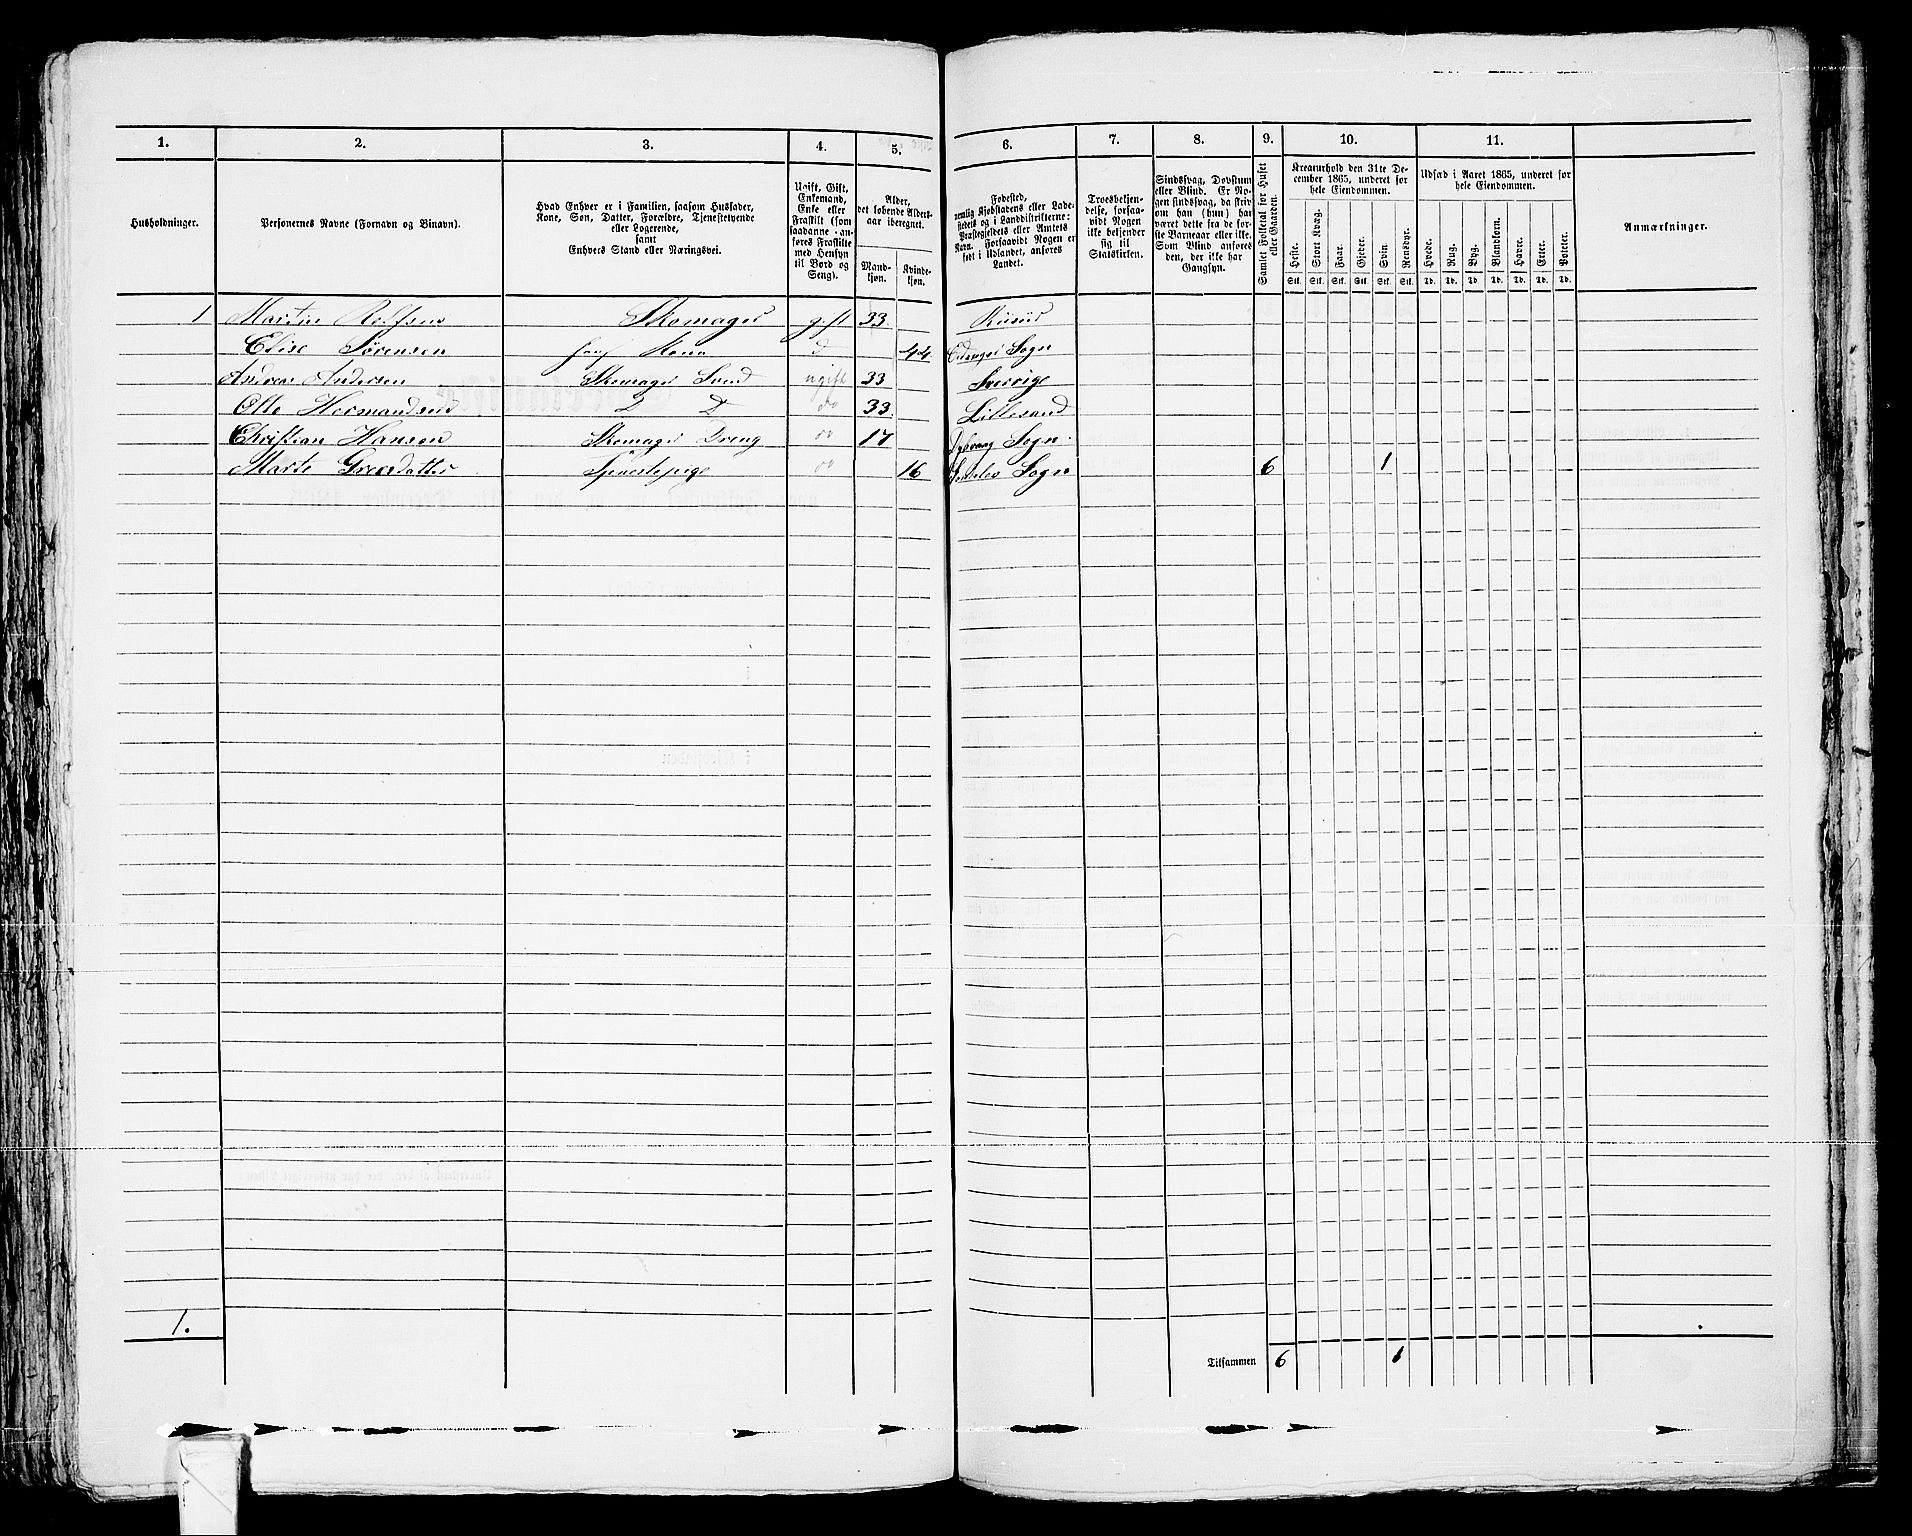 1. 2. 3. 4. 5. 6. 7. 8. 9. 10. 11.
Husholdninger.
Personernes Navne (Fornavn og Binavn).
Hvad Enhver er i Familien, saasom Husfader,
Kone, Søn, Datter, Forældre, Tjenestetyende
eller Logerende,
samt
Enhvers Stand eller Næringsvei.
Ugift, Gift,
Enkemand,
Enke eller
Fraskilt (som
saadanne anføres Fraskilte
med Hensyn
til Bord og
Seng).
Alder,
det løbende Aldersaar iberegnet.
Mandkjøn.
Kvindekjøn.
Fødested,
nemlig Kjøbstadens eller Ladestedets og i Landdistrikterne:
Præstegjeldets eller Amtets
Navn. Forsaavidt Nogen er
født i Udlandet, anføres
Landet.
Troesbekjendelse, forsaavidt Nogen
ikke bekjender
sig til
Statskirken.
Sindssvag, Døvstum
eller Blind. Er Nogen sindssvag, da skrives
om han (hun) har
været dette fra de første Barneaar eller ikke.
Som Blind anføres
den, der ikke har
Gangsyn.
Samlet Folketal for Huset
eller Gaarden.
Kreaturhold den 31te December 1865, underet for
hele Eiendommen.
Heste. Stort Kvæg. Faar. Gjeder. Svin. Rensdyr.
Stk. Stk. Stk. Stk. Stk. Stk.
Udsæd i Aaret 1865, underet for
hele Eiendommen.
Hvede. Rug. Byg. Blandkorn. Havre. Erter. Poteter.
Td. Td. Td. Td. Td. Td. Td.
Anmærkninger.
1 Martin Skomager gift 33
Elise Sørensen Kone 44 Sogn
Andreas Andersen Skomager Svend ugift 33 Sverrige
Olle Hermandsen D D do 33 Lillesand
Christian Hansen Skomager Dreng do 17 Dybvaag Sogn
Marte Tjenestepige do 16 Søndeløv Sogn 6 1
1.
Tilsammen 6 1